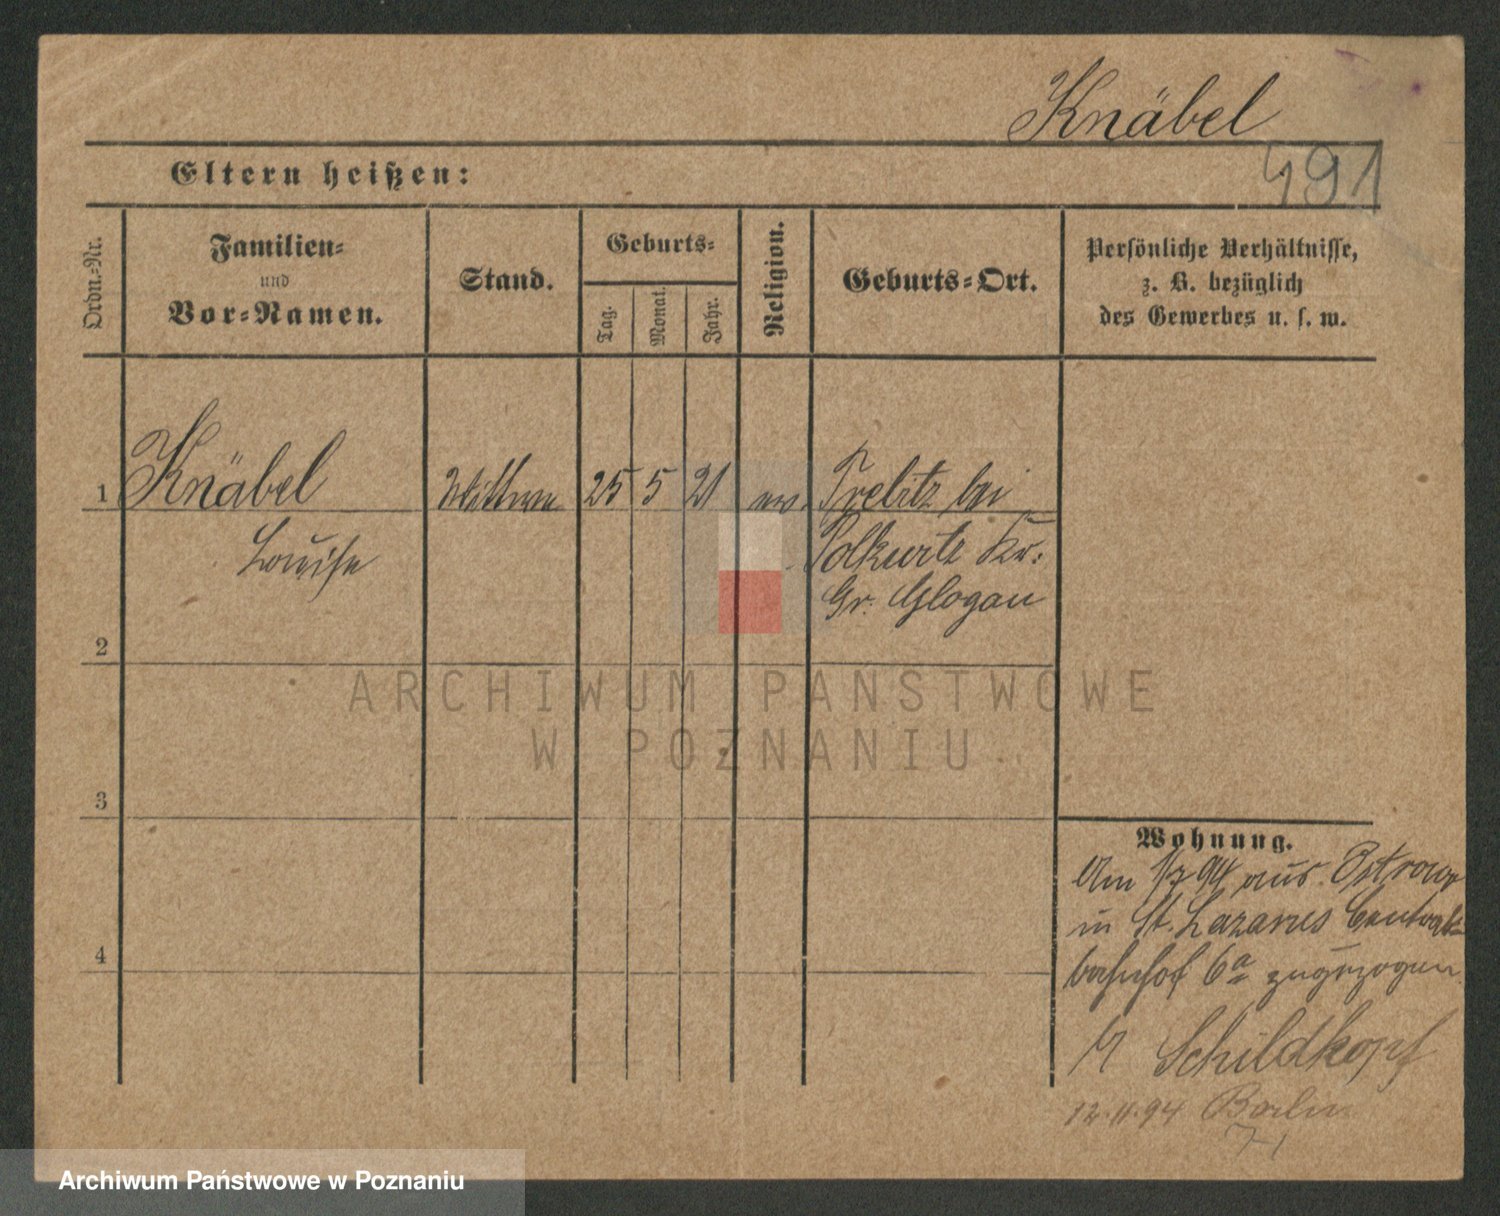 Knäbel
491
Eltern heißen:
Ordn.-Nr.
Familien-
und
Vor-Namen.
Stand.
Geburts-
Tag.
Monat.
Jahr.
Religion.
Geburts-Ort.
Persönliche Verhältnisse,
z. B. bezüglich
des Gewerbes u. s. w.
1 Knäbel Wittwe 25 5 21 ev. Trebitz bei
Louise Polkwitz Kr:
Gr. Glogau
2
ARCHIWUM PAŃSTWOWE
W POZNANIU
3
Wohnung.
Am 1/7 94 aus Ostrowo
in St. Lazarus Central-
bahnhof 6a zugezogen
b/ Schildkopf
4
12.11.94 Berlin
Archiwum Państwowe w Poznaniu